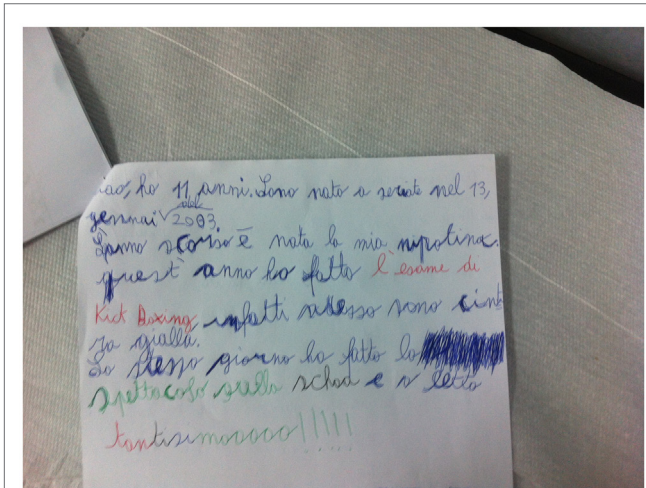 iao, ho 11 anni. Sono nato a seriate nel 13,
gennai del 2003
L'anno scorso è nata la mia nipotina.
quest'anno ho fatto l'esame di
Kick Boxing infatti adesso sono cint
ra gialla.
Lo stesso giorno ho fatto lo
spettacolo sulla e o letto
tantisimooooo!!!!!